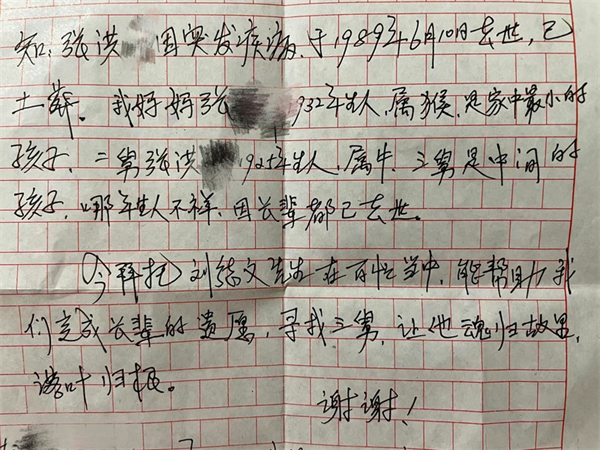 知，张洪 因突发疾病，于1989年6月10日去世，已
土葬。我妈妈张 932年生人，属猴，是家中最小的
孩子，二舅张洪 1925年生人，属牛，三舅是中间的
孩子，哪年生人不祥，因长辈都已去世。
今拜托刘德文先生在百忙当中，能帮助我
们完成长辈的遗愿，寻找三舅，让他魂归故里，
落叶归根。
谢谢！